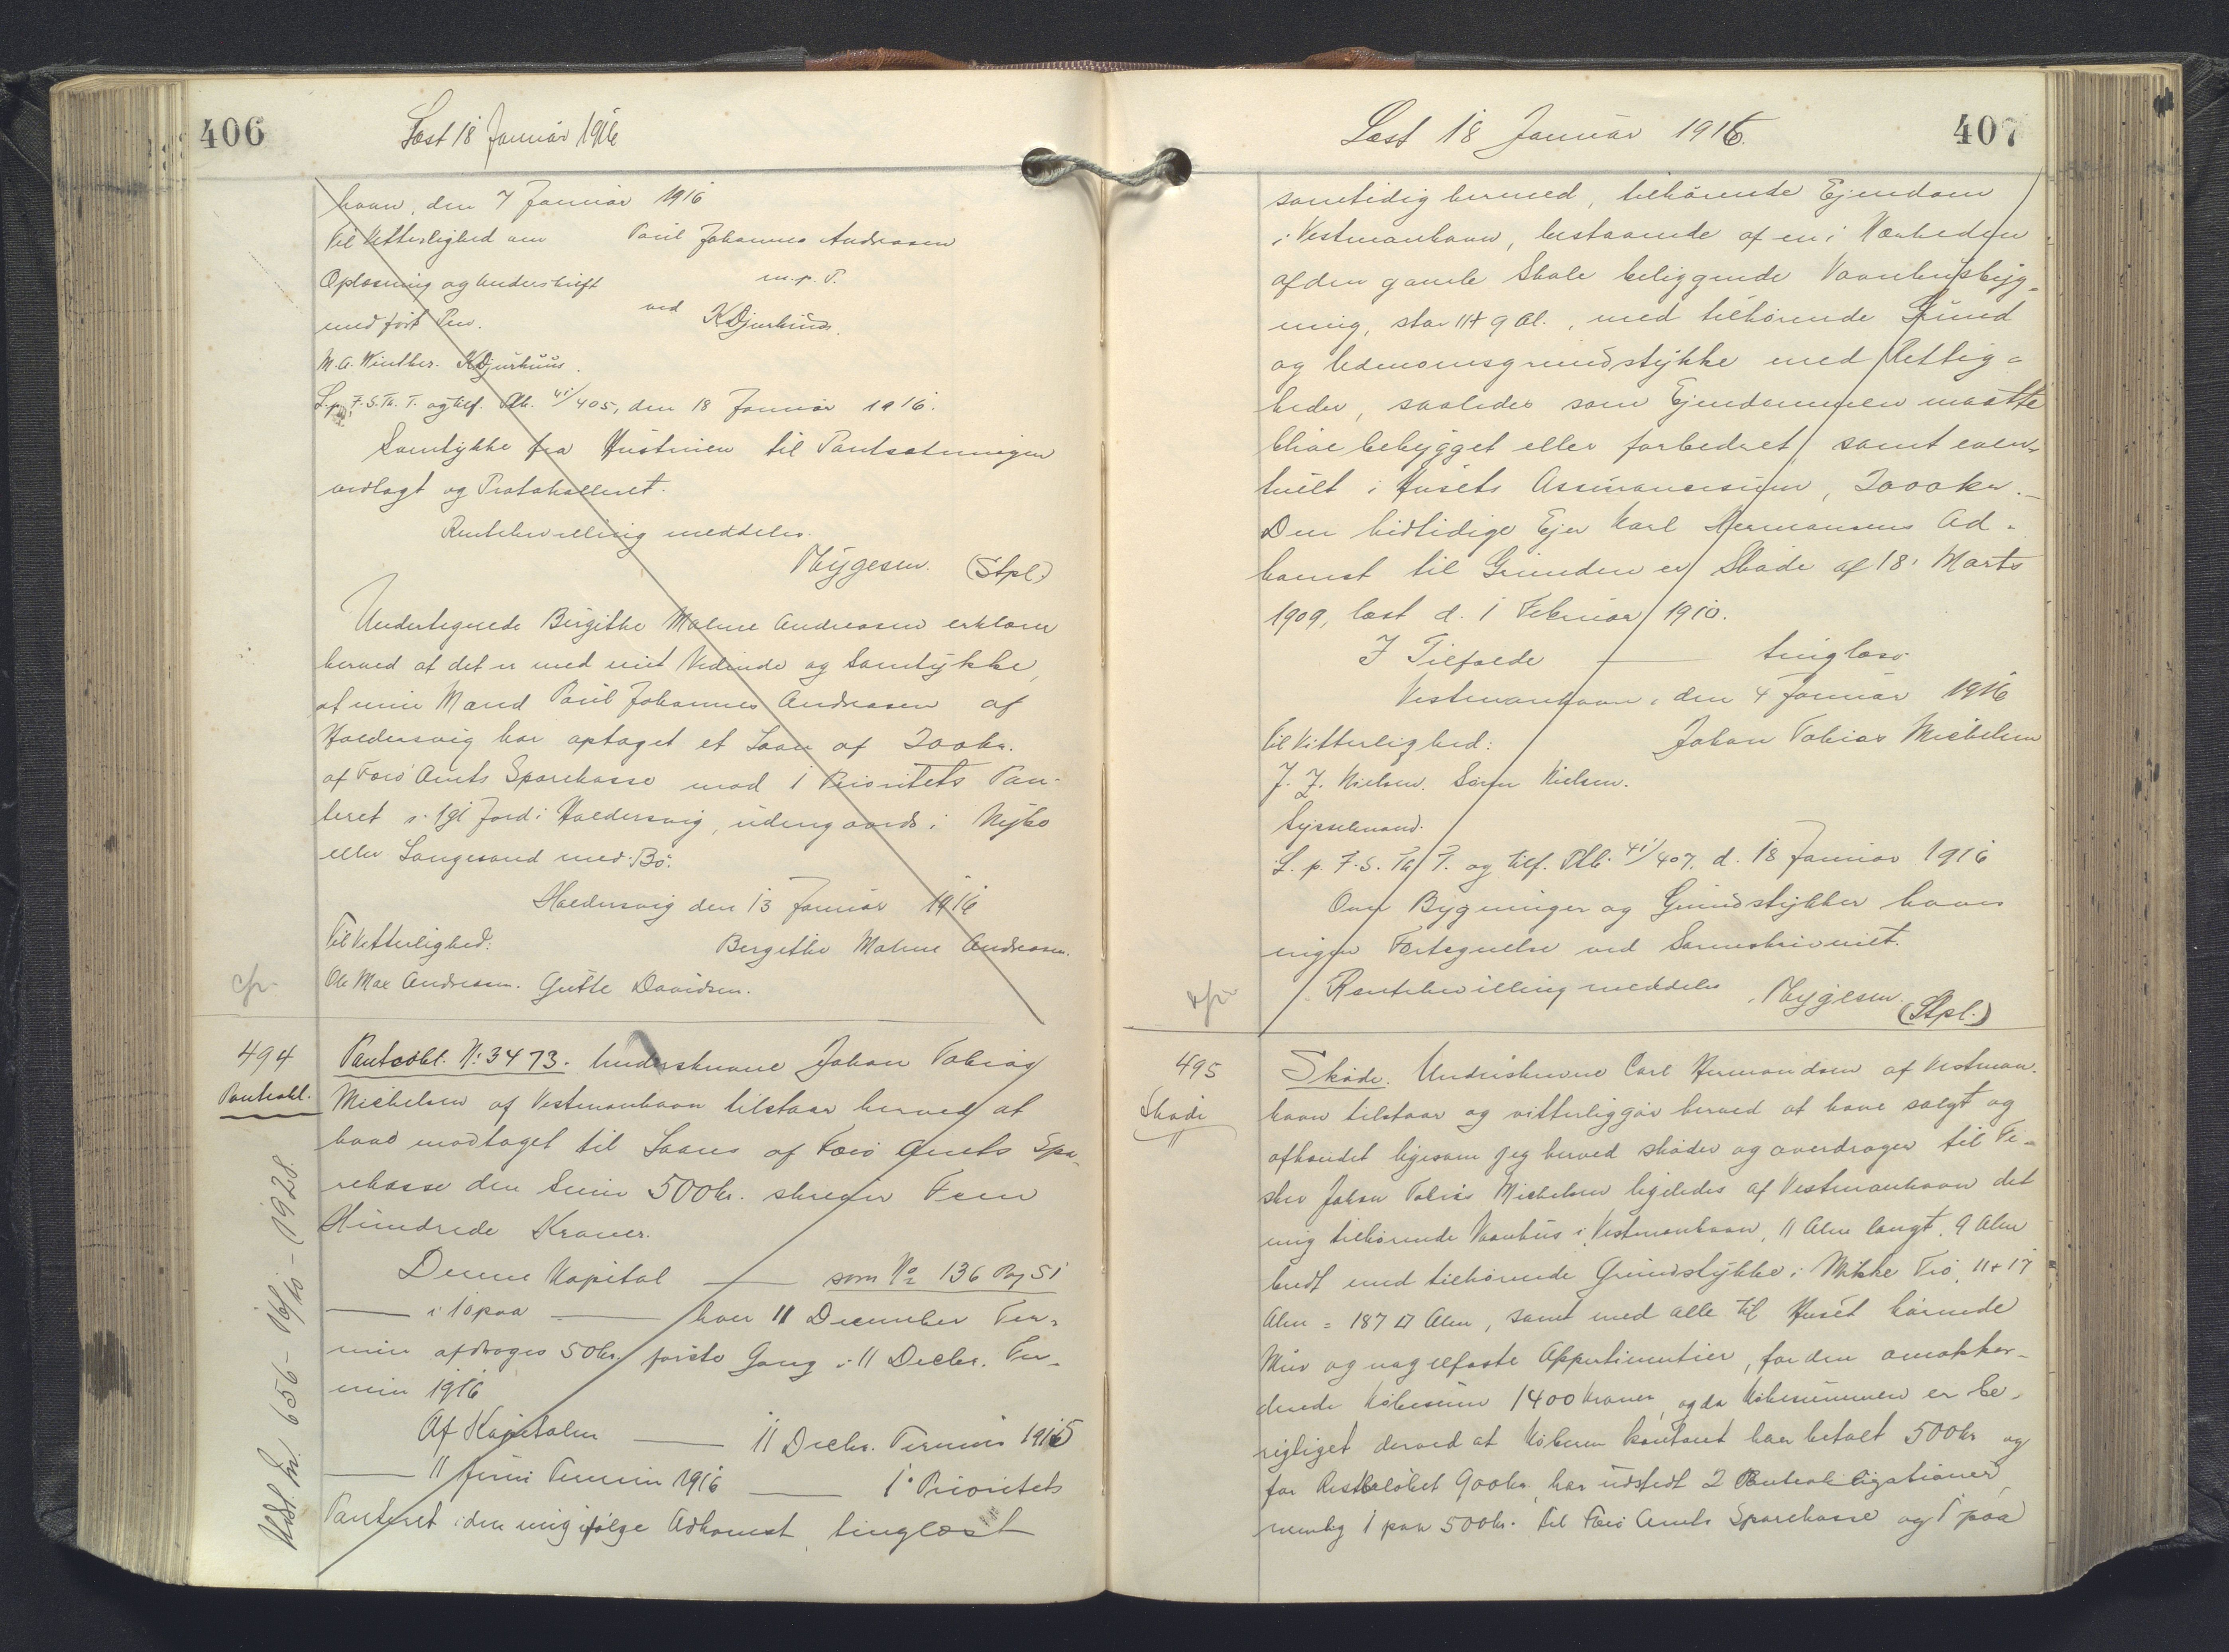 406
Læst 18 Januar 1916
havn, den 7 Januar 1916
Til Vitterlighed om Poul Johannes Andreasen
Oplæsning og Underskrift m. p. P.
med ført Pen. ved K Djurhuus.
M. A. Winther. K Djurhuus.
L. p. F. S. Th. T. og tilf. Ptb. 41/405, den 18 Januar 1916.
Samtykke fra Hustruen til Pantsætningen
vedlagt og Protokolleret.
Rentebevilling meddeles.
Mygesen. (Stpl.)
Undertegnede Birgithe Malene Andreasen erklærer
herved at det er med mit Vidende og Samtykke,
at min Mand Poul Johannes Andreasen af
Haldersvig har optaget et Laan af 200 kr.
af Færø Amts Sparekasse mod 1 Prioritets Pan-
teret i 1 gl Jord i Haldersvig, udengaards i Nybø
eller Langesand med Bø.
Haldersvig den 13 Januar 1916
Til Vitterlighed: Bergithe Malene Andreasen.
Ole Max Andreasen. Gutte Davidsen.
cfr.
494
Panteobl.
Panteobl. No 3473. Underskrevne Johan Tobias
Michelsen af Vestmanhavn tilstaar herved at
have modtaget til Laans af Færø Amts Spa-
rekasse den Sum 500 kr. skriver Fem
Hundrede Kroner.
Denne Kapital — som No 136 Pag 51
— i 10 paa — hver 11 December Ter-
min afdrages 50 kr. første Gang i 11 Decbr. Ter-
min 1916
Af Kapitalen — 11 Decbr. Termin 1915
— 11 Juni Termin 1916 — 1' Prioritets
Panteret i den mig ifølge Adkomst, tinglæst
Udsl. Jnr. 656 - 16/10 - 1928.
407
Læst 18 Januar 1916.
samtidig hermed, tilhørende Ejendom
i Vestmanhavn, bestaaende af en i Nærheden
af den gamle Skole beliggende Vaanhusbyg-
ning, stor 11 + 9 Al., med tilhørende Grund
og Udenomsgrundstykke med Rettig-
heder, saaledes som Ejendommen maatte
blive bebygget eller forbedret, samt even-
tuelt i Husets Assurancesum, 2000 kr.
Den hidtidige Ejer Karl Hermansens Ad-
komst til Grunden er Skøde af 18. Marts
1909, læst d. 1 Februar 1910.
I Tilfælde — tinglæses
Vestmanhavn, den 4 Januar 1916
Til Vitterlighed: Johan Tobias Michelsen
J. J. Nielsen. Søren Nielsen.
Sysselmand.
L. p. F. S. Th. T. og tilf. Ptb. 41/407, d. 18 Januar 1916
Over Bygninger og Grundstykker haves
ingen Fortegnelse ved Sorenskriveriet.
Rentebevilling meddeles Mygesen. (Stpl.)
cfr.
495
Skøde
Skøde. Underskrevne Carl Hermandsen af Vestman-
havn tilstaar og vitterliggør herved at have solgt og
afhændet ligesom jeg herved skøder og overdrager til Fi-
sker Johan Tobias Michelsen ligeledes af Vestmanhavn det
mig tilhørende Vaanhus i Vestmanhavn, 11 Alen langt, 9 Alen
bredt med tilhørende Grundstykke i Mikke Trø, 11 + 17
Alen = 187 □ Alen, samt med alle til Huset hørende
Mur og nagelfaste Appertinentier, for den omakkor-
derede Købesum 1400 Kroner, og da Købesummen er be-
rigtiget derved at Køberen kontant har betalt 500 kr og
for Restbeløbet 900 kr. har udstedt 2 Panteobligationer,
nemlig 1 paa 500 kr. til Færø Amts Sparekasse og 1 paa